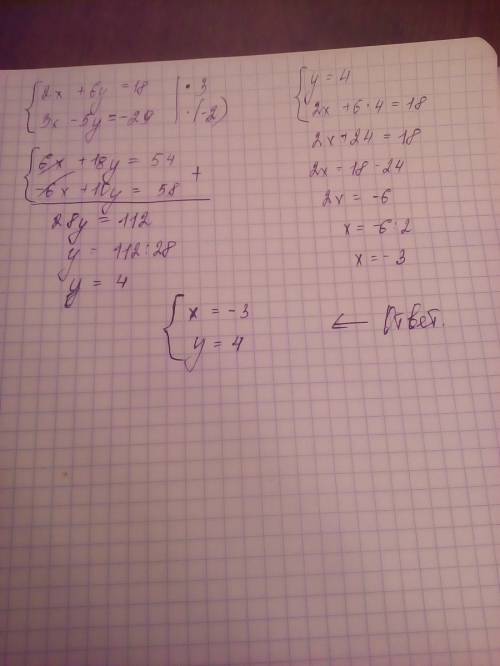 2x + 6y = 18 | · 3
3x - 5y = -29 | · (-2)
6x + 18y = 54
-6x + 10y = 58 +
28y = 112
y = 112 : 28
y = 4
y = 4
2x + 6 · 4 = 18
2x + 24 = 18
2x = 18 - 24
2x = -6
x = -6 : 2
x = -3
x = -3
y = 4
← Ответ.